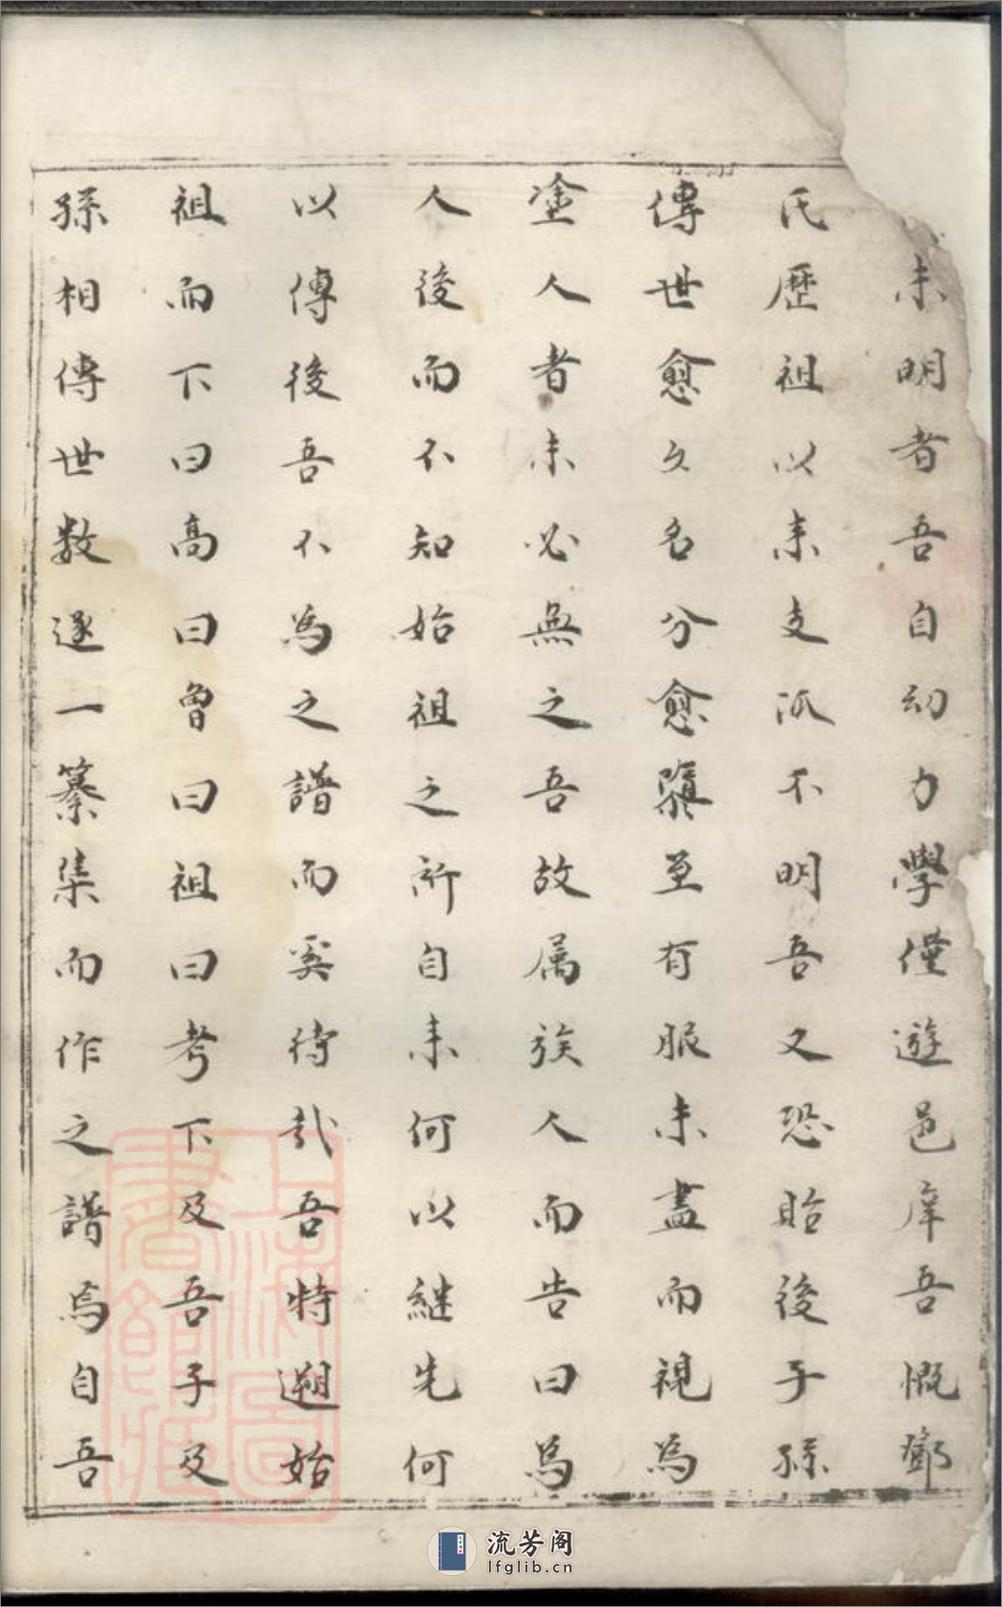 未明者吾自幼力學僅遊邑庠吾慨鄧
氏歷祖以来支派不明吾又恐貽後子孫
傳世愈久名分愈隳至有服未盡而視為
塗人者未必無之吾故属族人而告曰為
人後而不知始祖之所自来何以継先何
以傳後吾不為之譜而奚待哉吾特遡始
祖而下曰高曰曾曰祖曰考下及吾子及
孫相傳世數遂一纂集而作之譜焉自吾
上海圖書館藏
流芳阁
lfglib.cn